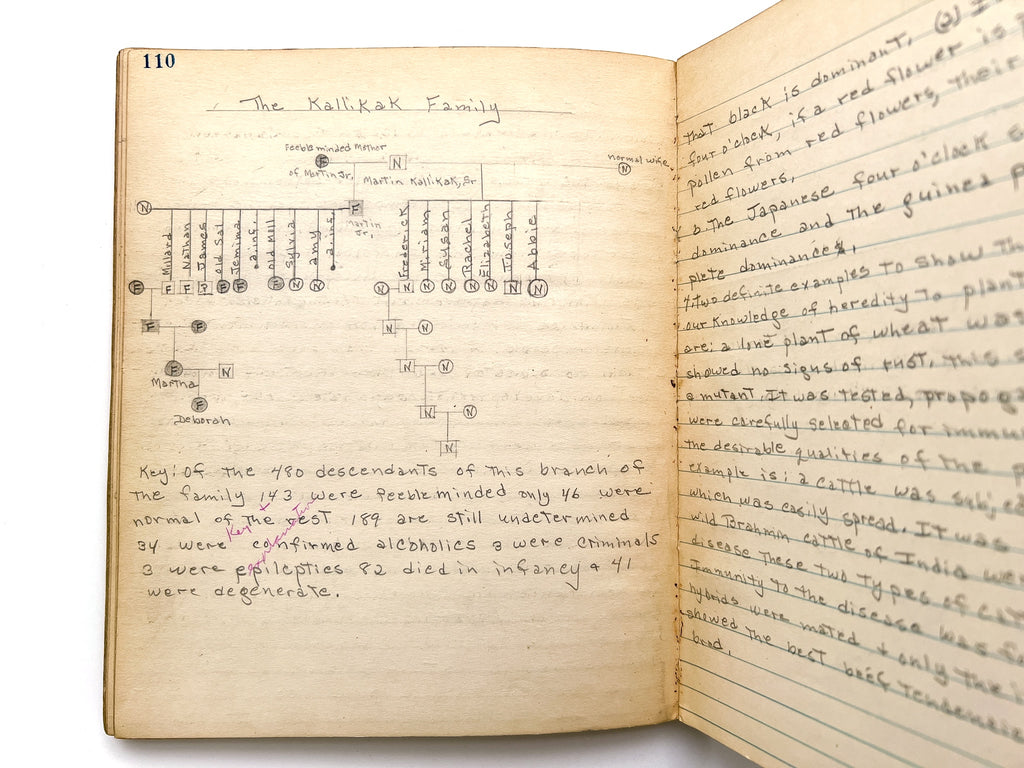 110
The Kallikak Family
Feebleminded Mother
of Martin Jr.
F
N
Martin Kallikak, Sr
normal wife
N
N
F
Martin
Jr.
Millard
Nathan
James
Old Sal
Jemima
a.inf.
Old Moll
Sylvia
Amy
a.inf.
Frederick
Miriam
Susan
Rachel
Elizabeth
Joseph
Abbie
F F F ? F F F N N
N N N N N N N N
F F
N N
F
Martha
N
N N
F
Deborah
N N
N
Key: Of the 480 descendants of this branch of
the family 143 were feebleminded only 46 were
normal of the rest 189 are still undetermined
34 were confirmed alcoholics 3 were criminals
3 were epileptics 82 died in infancy + 41
were degenerate.
Key +
that black is dominant. (2)
four o'clock, if a red flower is
pollen from red flowers, their
red flowers.
b. The Japanese four o'clock
dominance and the guinea
plete dominance.
7. Two definite examples to show
our knowledge of heredity to plant
are: a lone plant of wheat was
showed no signs of rust. This
a mutant. It was tested,
were carefully selected for
the desirable qualities of the
example is: a cattle was
which was easily spread. It was
wild Brahmin cattle of India were
disease these two types of
Immunity to the disease was
hybrids were mated + only the
showed the best beef
bred.